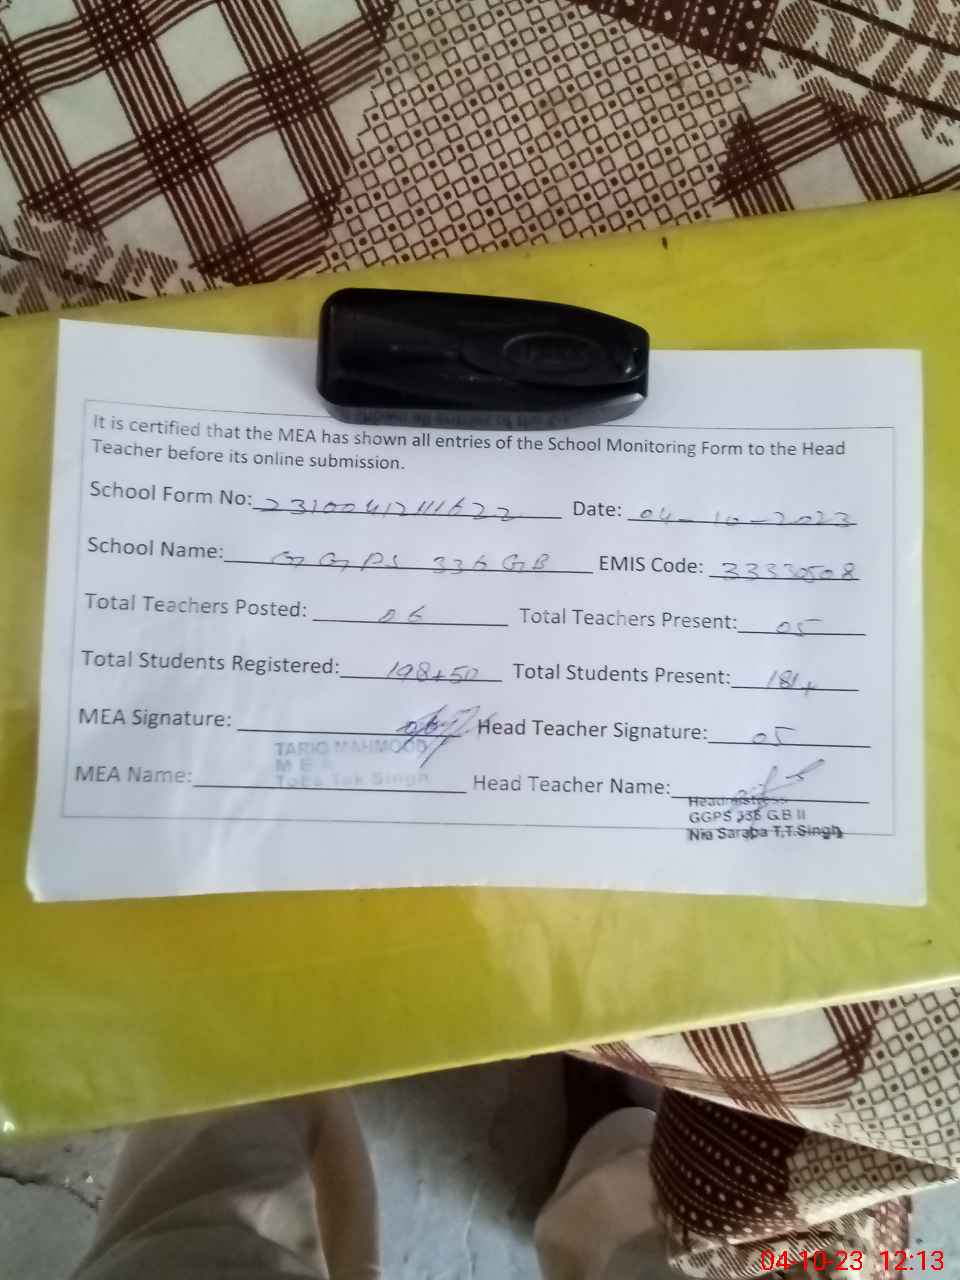 It is certified that the MEA has shown all entries of the School Monitoring Form to the Head
Teacher before its online submission.
School Form No: 2310041211622 Date: 04-10-2023
School Name: GGPS 336 GB EMIS Code: 33330508
Total Teachers Posted: 06 Total Teachers Present: 05
Total Students Registered: 198+50 Total Students Present: 181+
MEA Signature: Head Teacher Signature: 05
TARIQ MAHMOOD
M E A
Toba Tek Singh
MEA Name: Head Teacher Name:
Headmistress
GGPS 336 G.B II
Nia Saraba T.T.Singh
04-10-23 12:13